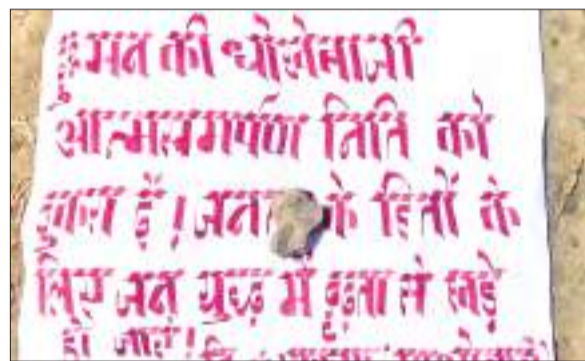 दुश्मन की धोखेबाजी
आत्मसमर्पण निति को
ठुकरा दें। के हितों के
लिए जन युद्ध में दृढ़ता से खड़े
हो जाएं!